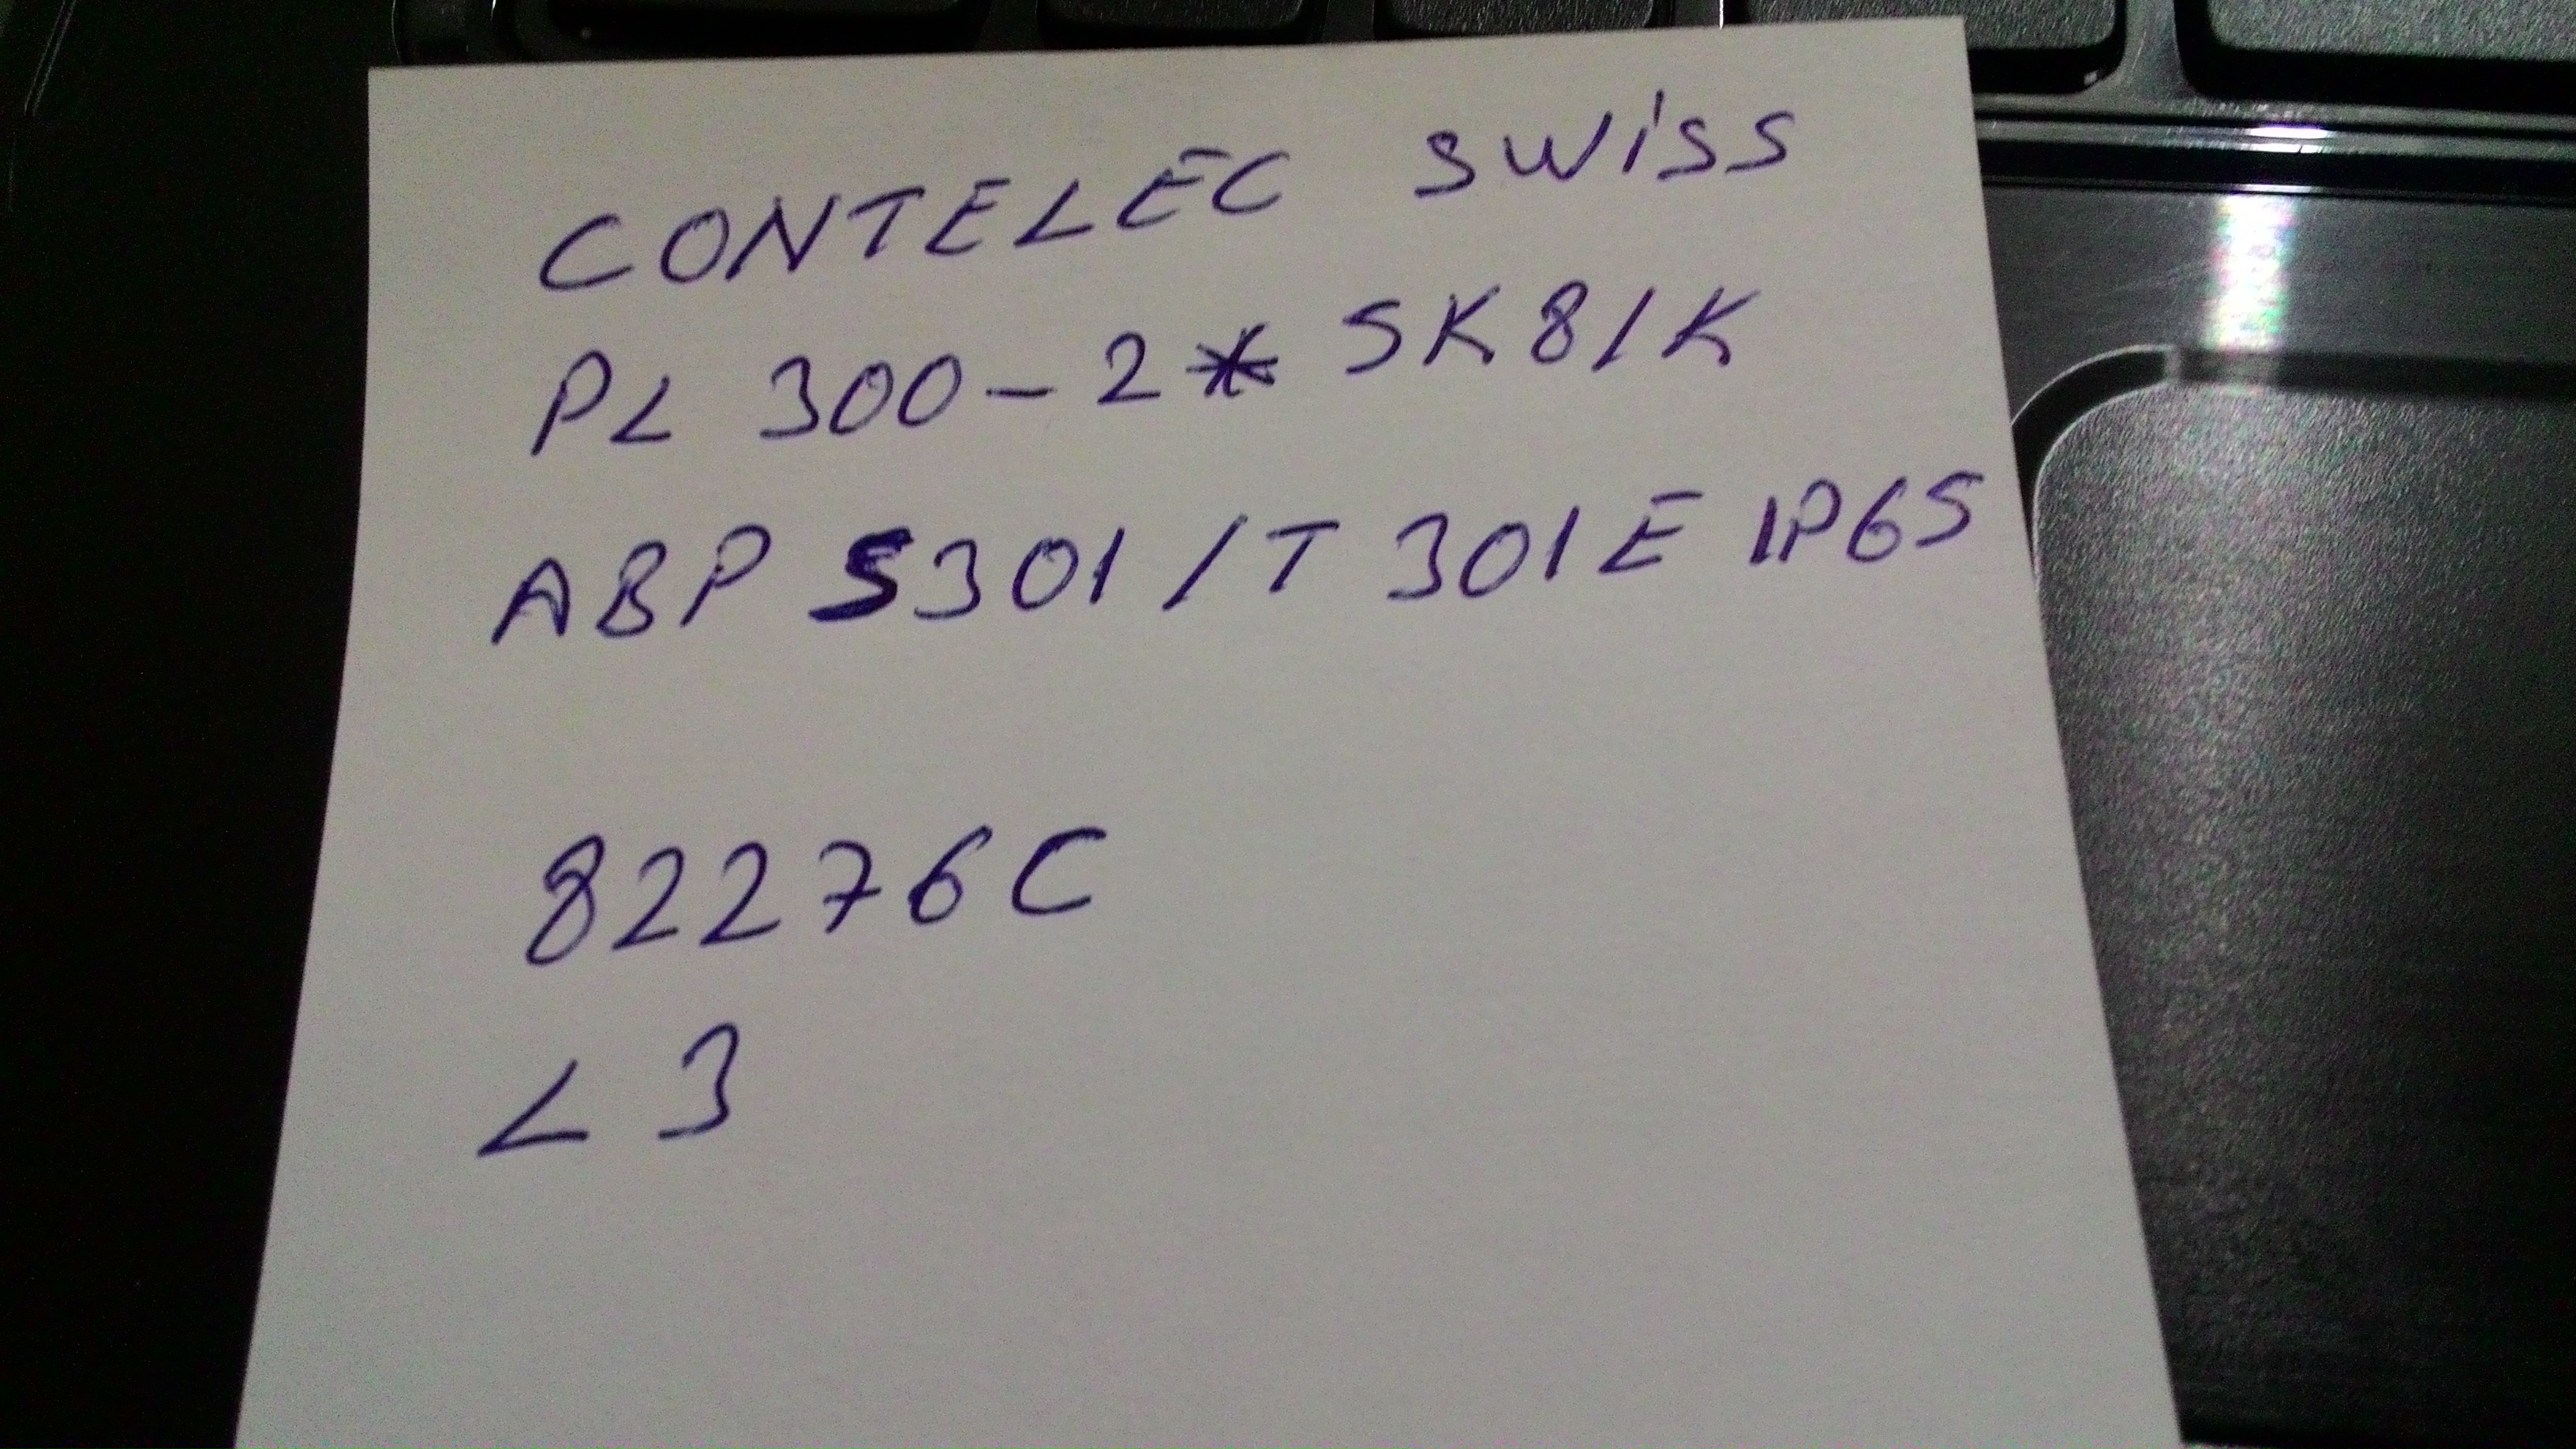 CONTELEC SWISS
PL 300-2* 5K81K
ABP S301/T 301E IP65
82276C
L 3